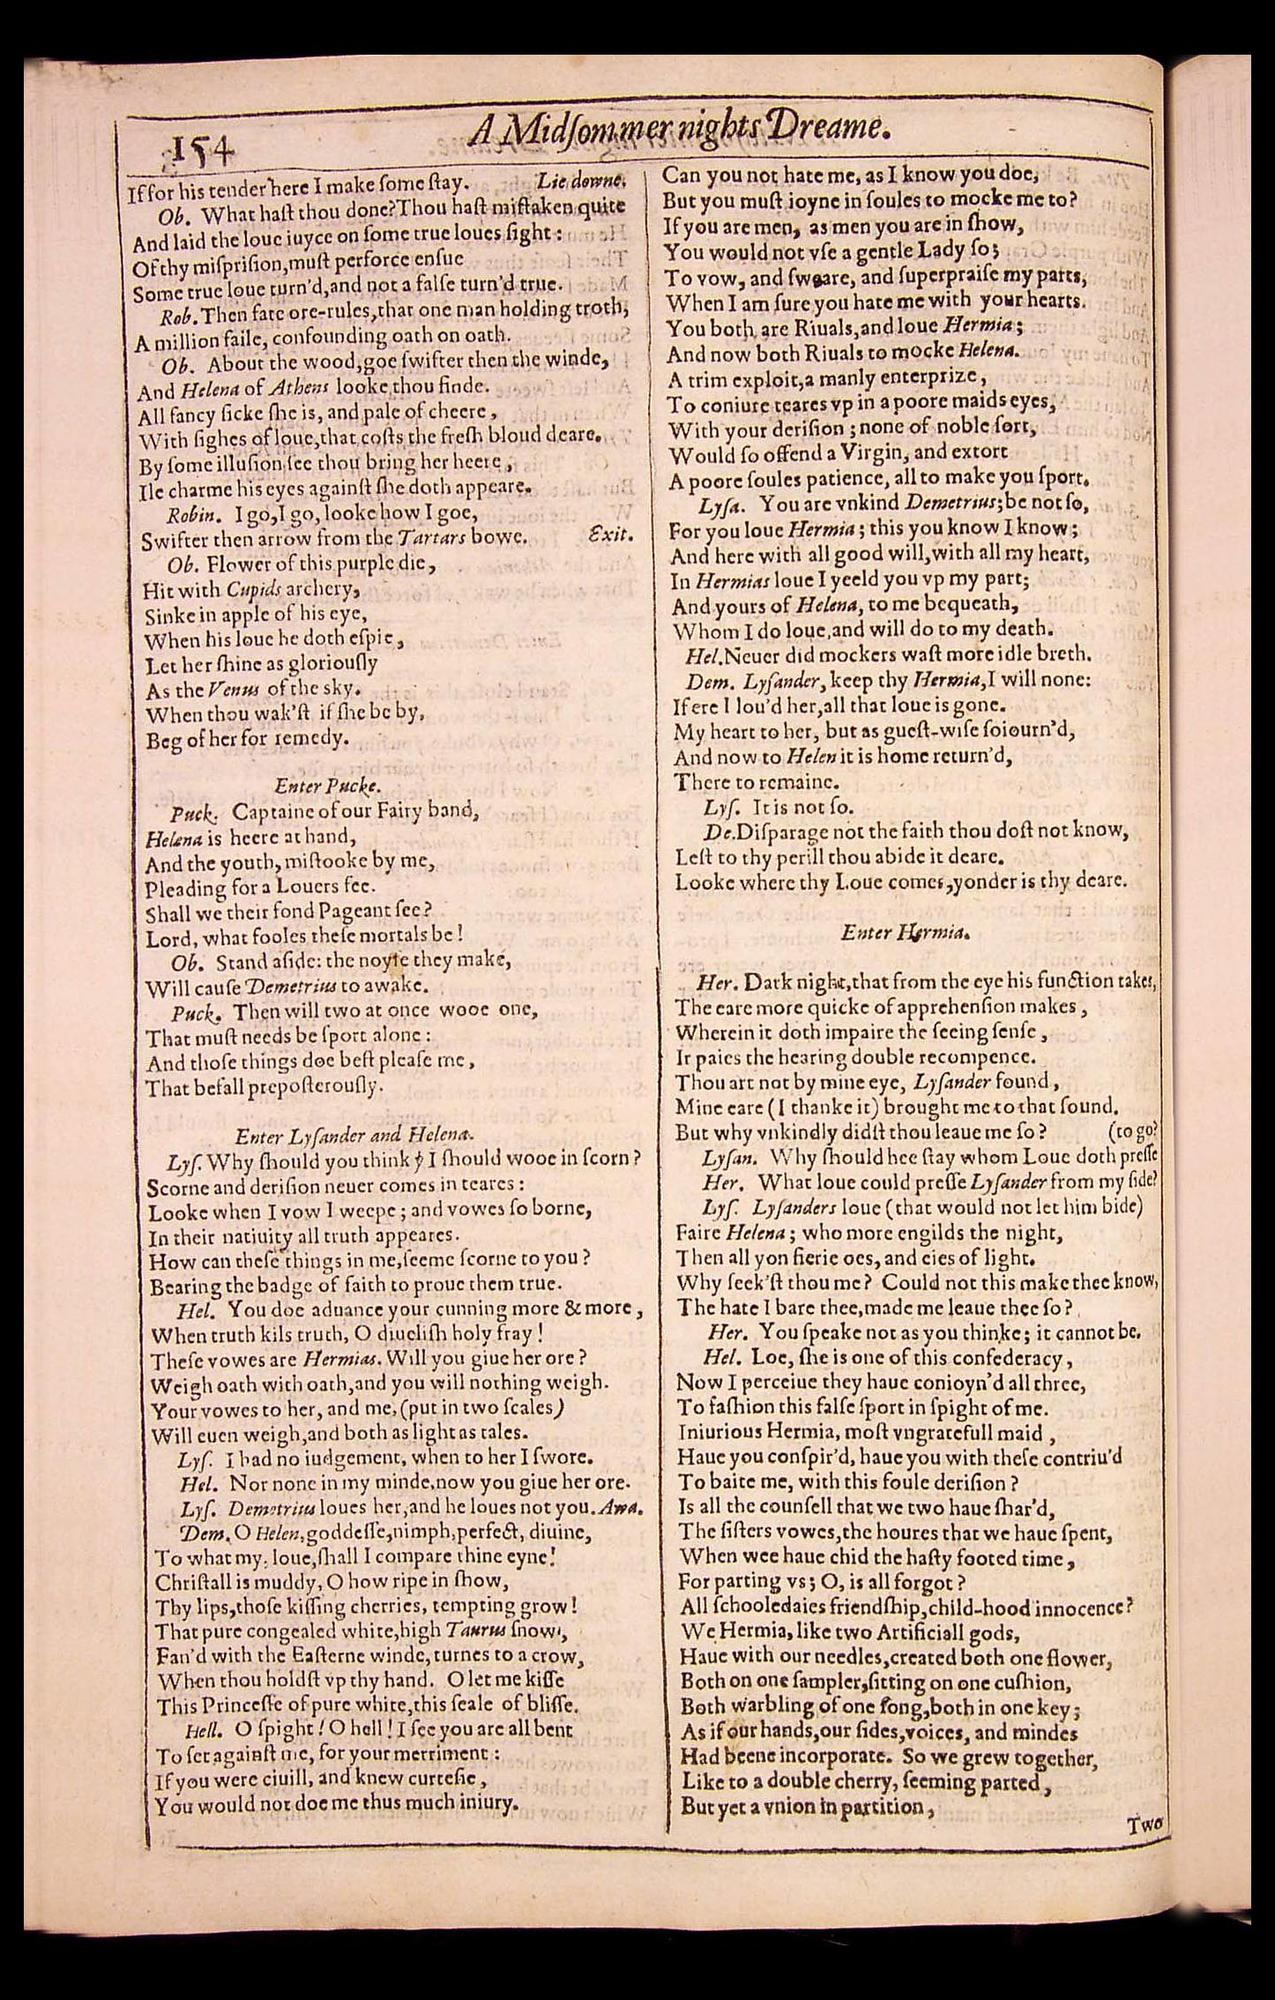 154
A Midſommer nights Dreame.
If for his tender here I make ſome ſtay. Lie downe.
Ob. What haſt thou done? Thou haſt miſtaken quite
And laid the loue iuyce on ſome true loues ſight:
Of thy miſpriſion, muſt perforce enſue
Some true loue turn'd, and not a falſe turn'd true.
Rob. Then fate ore-rules, that one man holding troth,
A million faile, confounding oath on oath.
Ob. About the wood, goe ſwifter then the winde,
And Helena of Athens looke thou finde.
All fancy ſicke ſhe is, and pale of cheere,
With ſighes of loue, that coſts the freſh bloud deare.
By ſome illuſion ſee thou bring her heere,
Ile charme his eyes againſt ſhe doth appeare.
Robin. I go, I go, looke how I goe,
Swifter then arrow from the Tartars bowe. Exit.
Ob. Flower of this purple die,
Hit with Cupids archery,
Sinke in apple of his eye,
When his loue he doth eſpie,
Let her ſhine as gloriouſly
As the Venus of the sky.
When thou wak'ſt if ſhe be by,
Beg of her for remedy.
Enter Pucke.
Puck. Captaine of our Fairy band,
Helena is heere at hand,
And the youth, miſtooke by me,
Pleading for a Louers fee.
Shall we their fond Pageant ſee?
Lord, what fooles theſe mortals be!
Ob. Stand aſide: the noyſe they make,
Will cauſe Demetrius to awake.
Puck. Then will two at once wooe one,
That muſt needs be ſport alone:
And thoſe things doe beſt pleaſe me,
That befall prepoſterouſly.
Enter Lyſander and Helena.
Lyſ. Why ſhould you think yͭ I ſhould wooe in ſcorn?
Scorne and deriſion neuer comes in teares:
Looke when I vow I weepe; and vowes ſo borne,
In their natiuity all truth appeares.
How can theſe things in me, ſeeme ſcorne to you?
Bearing the badge of faith to proue them true.
Hel. You doe aduance your cunning more & more,
When truth kils truth, O diueliſh holy fray!
Theſe vowes are Hermias. Will you giue her ore?
Weigh oath with oath, and you will nothing weigh.
Your vowes to her, and me, (put in two ſcales)
Will euen weigh, and both as light as tales.
Lyſ. I had no iudgement, when to her I ſwore.
Hel. Nor none in my minde, now you giue her ore.
Lyſ. Demetrius loues her, and he loues not you. Awa.
Dem. O Helen, goddeſſe, nimph, perfect, diuine,
To what my, loue, ſhall I compare thine eyne!
Chriſtall is muddy, O how ripe in ſhow,
Thy lips, thoſe kiſſing cherries, tempting grow!
That pure congealed white, high Taurus ſnow,
Fan'd with the Eaſterne winde, turnes to a crow,
When thou holdſt vp thy hand. O let me kiſſe
This Princeſſe of pure white, this ſeale of bliſſe.
Hell. O ſpight! O hell! I ſee you are all bent
To ſet againſt me, for your merriment:
If you were ciuill, and knew curteſie,
You would not doe me thus much iniury.
Can you not hate me, as I know you doe,
But you muſt ioyne in ſoules to mocke me to?
If you are men, as men you are in ſhow,
You would not vſe a gentle Lady ſo;
To vow, and ſweare, and ſuperpraiſe my parts,
When I am ſure you hate me with your hearts.
You both are Riuals, and loue Hermia;
And now both Riuals to mocke Helena.
A trim exploit, a manly enterprize,
To coniure teares vp in a poore maids eyes,
With your deriſion; none of noble ſort,
Would ſo offend a Virgin, and extort
A poore ſoules patience, all to make you ſport.
Lyſa. You are vnkind Demetrius; be not ſo,
For you loue Hermia; this you know I know;
And here with all good will, with all my heart,
In Hermias loue I yeeld you vp my part;
And yours of Helena, to me bequeath,
Whom I do loue, and will do to my death.
Hel. Neuer did mockers waſt more idle breth.
Dem. Lyſander, keep thy Hermia, I will none:
If ere I lou'd her, all that loue is gone.
My heart to her, but as gueſt-wiſe ſoiourn'd,
And now to Helen it is home return'd,
There to remaine.
Lyſ. It is not ſo.
De. Diſparage not the faith thou doſt not know,
Leſt to thy perill thou abide it deare.
Looke where thy Loue comes, yonder is thy deare.
Enter Hermia.
Her. Dark night, that from the eye his function takes,
The eare more quicke of apprehenſion makes,
Wherein it doth impaire the ſeeing ſenſe,
It paies the hearing double recompence.
Thou art not by mine eye, Lyſander found,
Mine eare (I thanke it) brought me to that ſound.
But why vnkindly didſt thou leaue me ſo? (to go?
Lyſan. Why ſhould hee ſtay whom Loue doth preſſe
Her. What loue could preſſe Lyſander from my ſide?
Lyſ. Lyſanders loue (that would not let him bide)
Faire Helena; who more engilds the night,
Then all yon fierie oes, and eies of light.
Why ſeek'ſt thou me? Could not this make thee know,
The hate I bare thee, made me leaue thee ſo?
Her. You ſpeake not as you thinke; it cannot be.
Hel. Loe, ſhe is one of this confederacy,
Now I perceiue they haue conioyn'd all three,
To faſhion this falſe ſport in ſpight of me.
Iniurious Hermia, moſt vngratefull maid,
Haue you conſpir'd, haue you with theſe contriu'd
To baite me, with this foule deriſion?
Is all the counſell that we two haue ſhar'd,
The ſiſters vowes, the houres that we haue ſpent,
When wee haue chid the haſty footed time,
For parting vs; O, is all forgot?
All ſchooledaies friendſhip, child-hood innocence?
We Hermia, like two Artificiall gods,
Haue with our needles, created both one flower,
Both on one ſampler, ſitting on one cuſhion,
Both warbling of one ſong, both in one key;
As if our hands, our ſides, voices, and mindes
Had beene incorporate. So we grew together,
Like to a double cherry, ſeeming parted,
But yet a vnion in partition,
Two